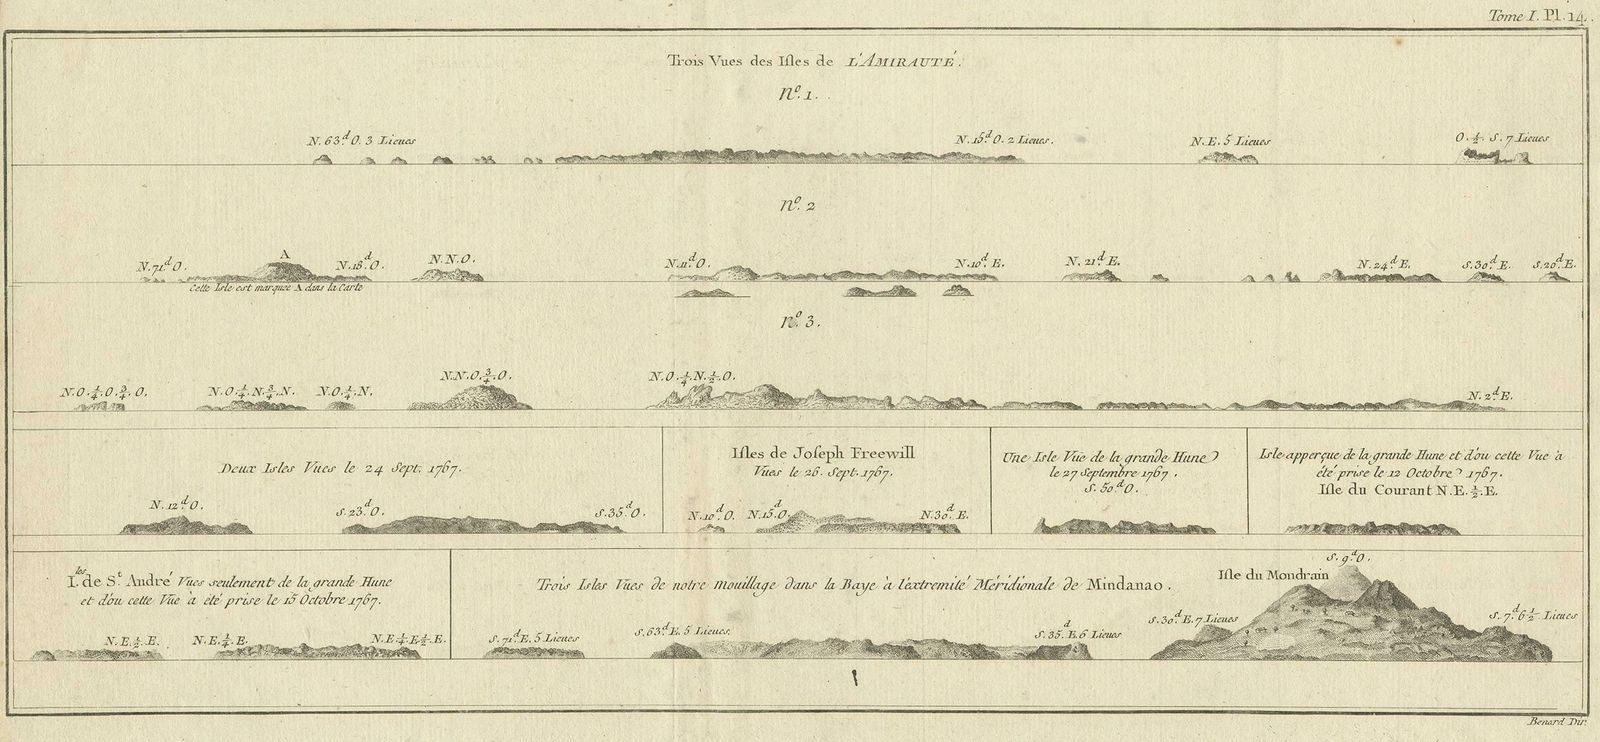 Tome I. Pl. 14.
Trois Vues des Isles de L'AMIRAUTÉ.
Nº. 1.
N. 63ᵈ O. 3 Lieues
N. 15ᵈ O. 2 Lieues.
N. E. 5 Lieues
O. ½ S. 7 Lieues
Nº. 2
N. 71ᵈ O.
A
N. 18ᵈ O.
N. N. O.
N. 11ᵈ O.
N. 10ᵈ E.
N. 21ᵈ E.
N. 24ᵈ E.
S. 30ᵈ E.
S. 20ᵈ E.
Cette Isle est marquée A dans la Carte
Nº. 3.
N. O. ¼ O. ¾ O.
N. O. ¼ N. ¾ N.
N. O. ¼ N.
N. N. O. ¾ O.
N. O. ¼ N. ½ O.
N. 2ᵈ E.
Deux Isles Vues le 24 Sept. 1767.
N. 12ᵈ O.
S. 23ᵈ O.
S. 35ᵈ O.
Isles de Joseph Freewill
Vues le 26. Sept. 1767.
N. 10ᵈ O.
N. 15ᵈ O.
N. 30ᵈ E.
Une Isle Vue de la grande Hune
le 27 Septembre 1767.
S. 50ᵈ O.
Isle apperçue de la grande Hune et d'ou cette Vue a
été prise le 12 Octobre 1767.
Isle du Courant N. E. ½ E.
I.ˡᵉˢ de Sᵗ. André Vues seulement de la grande Hune
et d'ou cette Vue à été prise le 15 Octobre 1767.
N. E. ½ E.
N. E. ¼ E.
N. E. ¼ E ½ E.
Trois Isles Vues de notre mouillage dans la Baye à l'extremité Méridionale de Mindanao.
S. 71ᵈ E. 5 Lieues
S. 63ᵈ E. 5 Lieues.
S. 35ᵈ E. 6 Lieues
S. 9ᵈ O.
Isle du Mondrain
S. 30ᵈ E. 7 Lieues
S. 7ᵈ 6 ½ Lieues
Benard Dir.